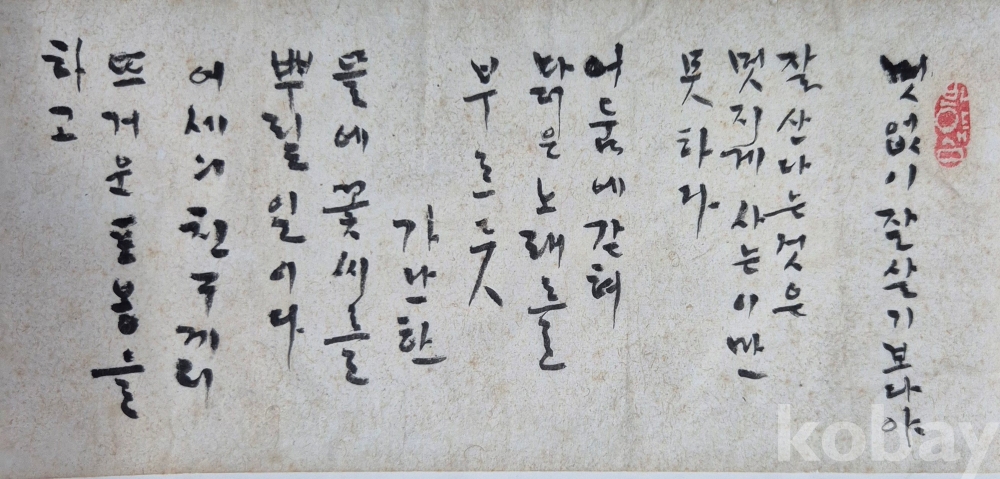 멋없이 잘살기보다야
잘산다는것은
멋지게 사는이만
못하다
어둠에갇혀
노래를
부르듯
가난한
들에 꽃씨를
뿌릴일이다
어제의 친구끼리
뜨거운 포옹을
하고
kobay